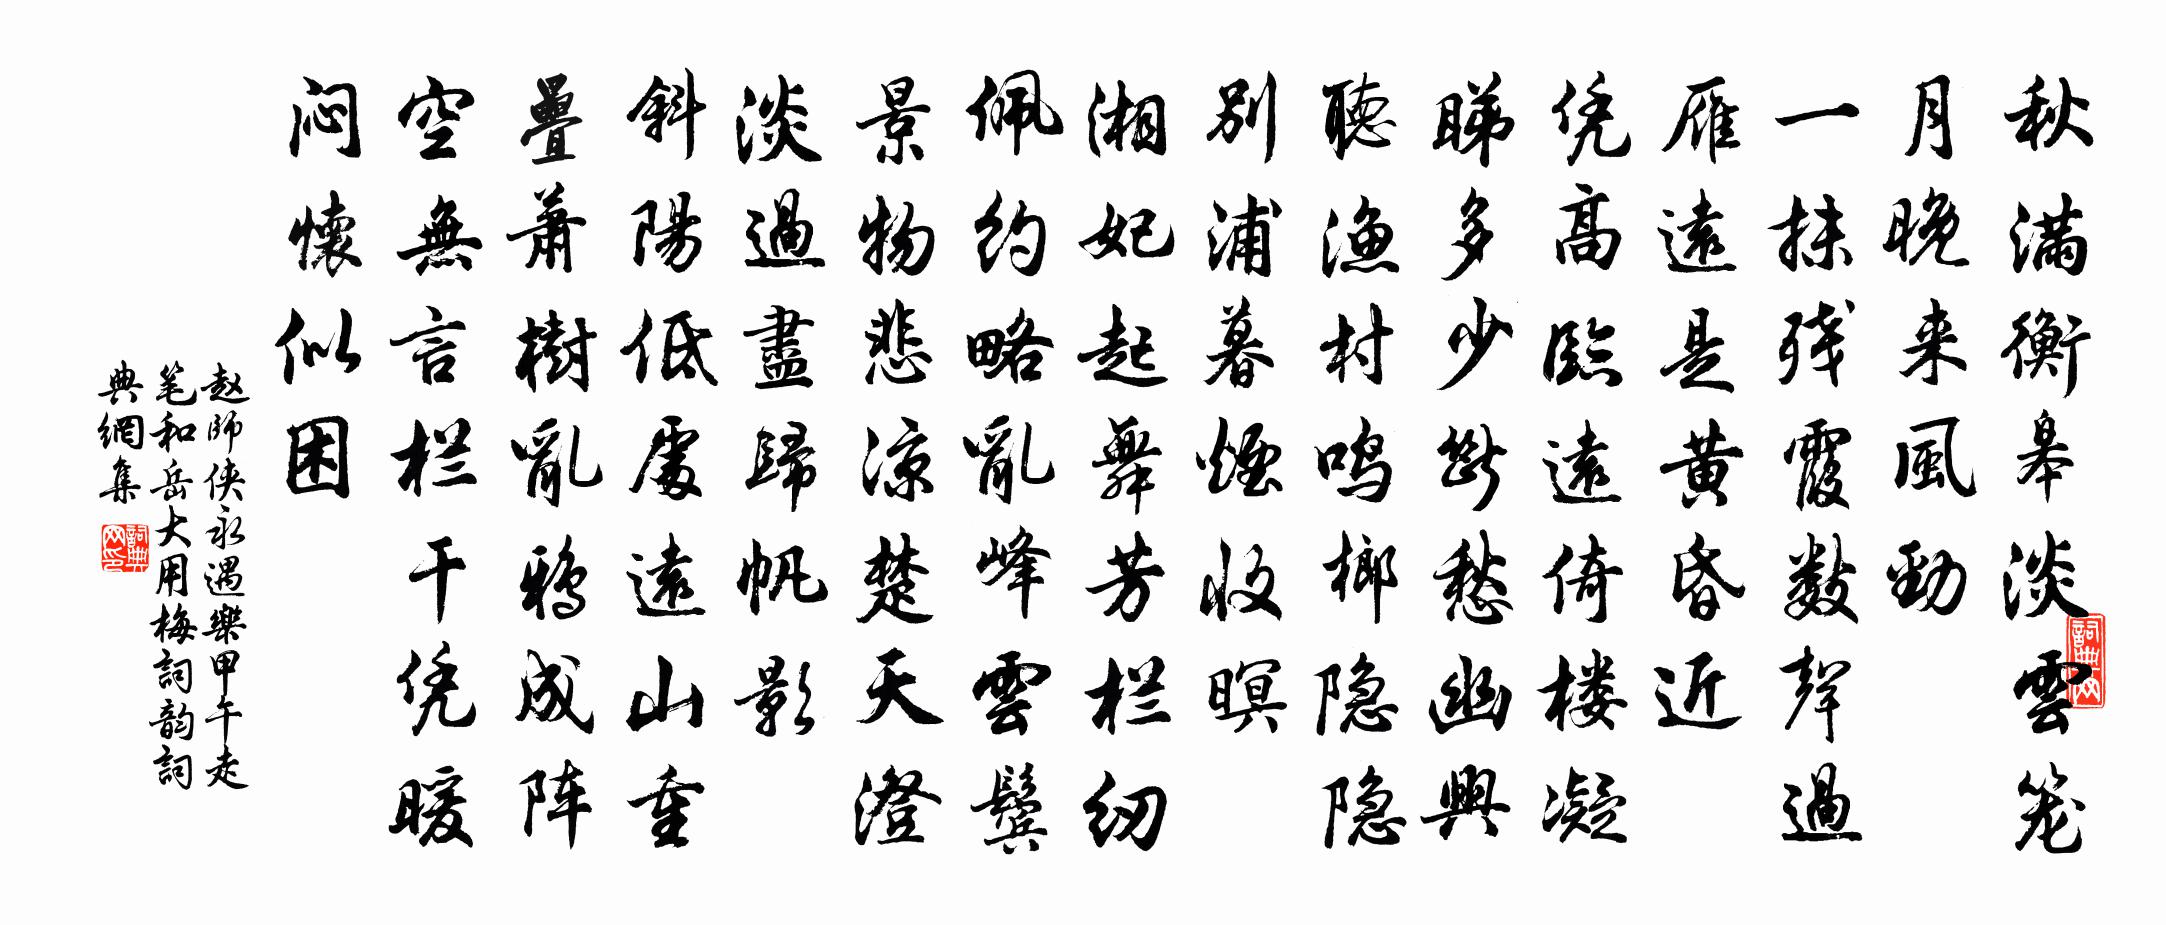 秋满衡皋淡雲笼
月晚来風勁
一抹残霞数聲過
雁遠是黄昏近
凭高臨遠倚楼凝
睇多少断愁幽興
聽渔村鸣榔隐隐
别浦暮煙收暝
湘妃起舞芳栏纫
佩约略亂峰雲鬓
景物悲凉楚天澄
淡過盡歸帆影
斜陽低處遠山重
疊萧樹亂鴉成阵
空無言栏干凭暖
闷懷似困
赵師侠永遇樂甲午走
笔和岳大用梅詞韵詞
典網集
詞典网
詞典网印